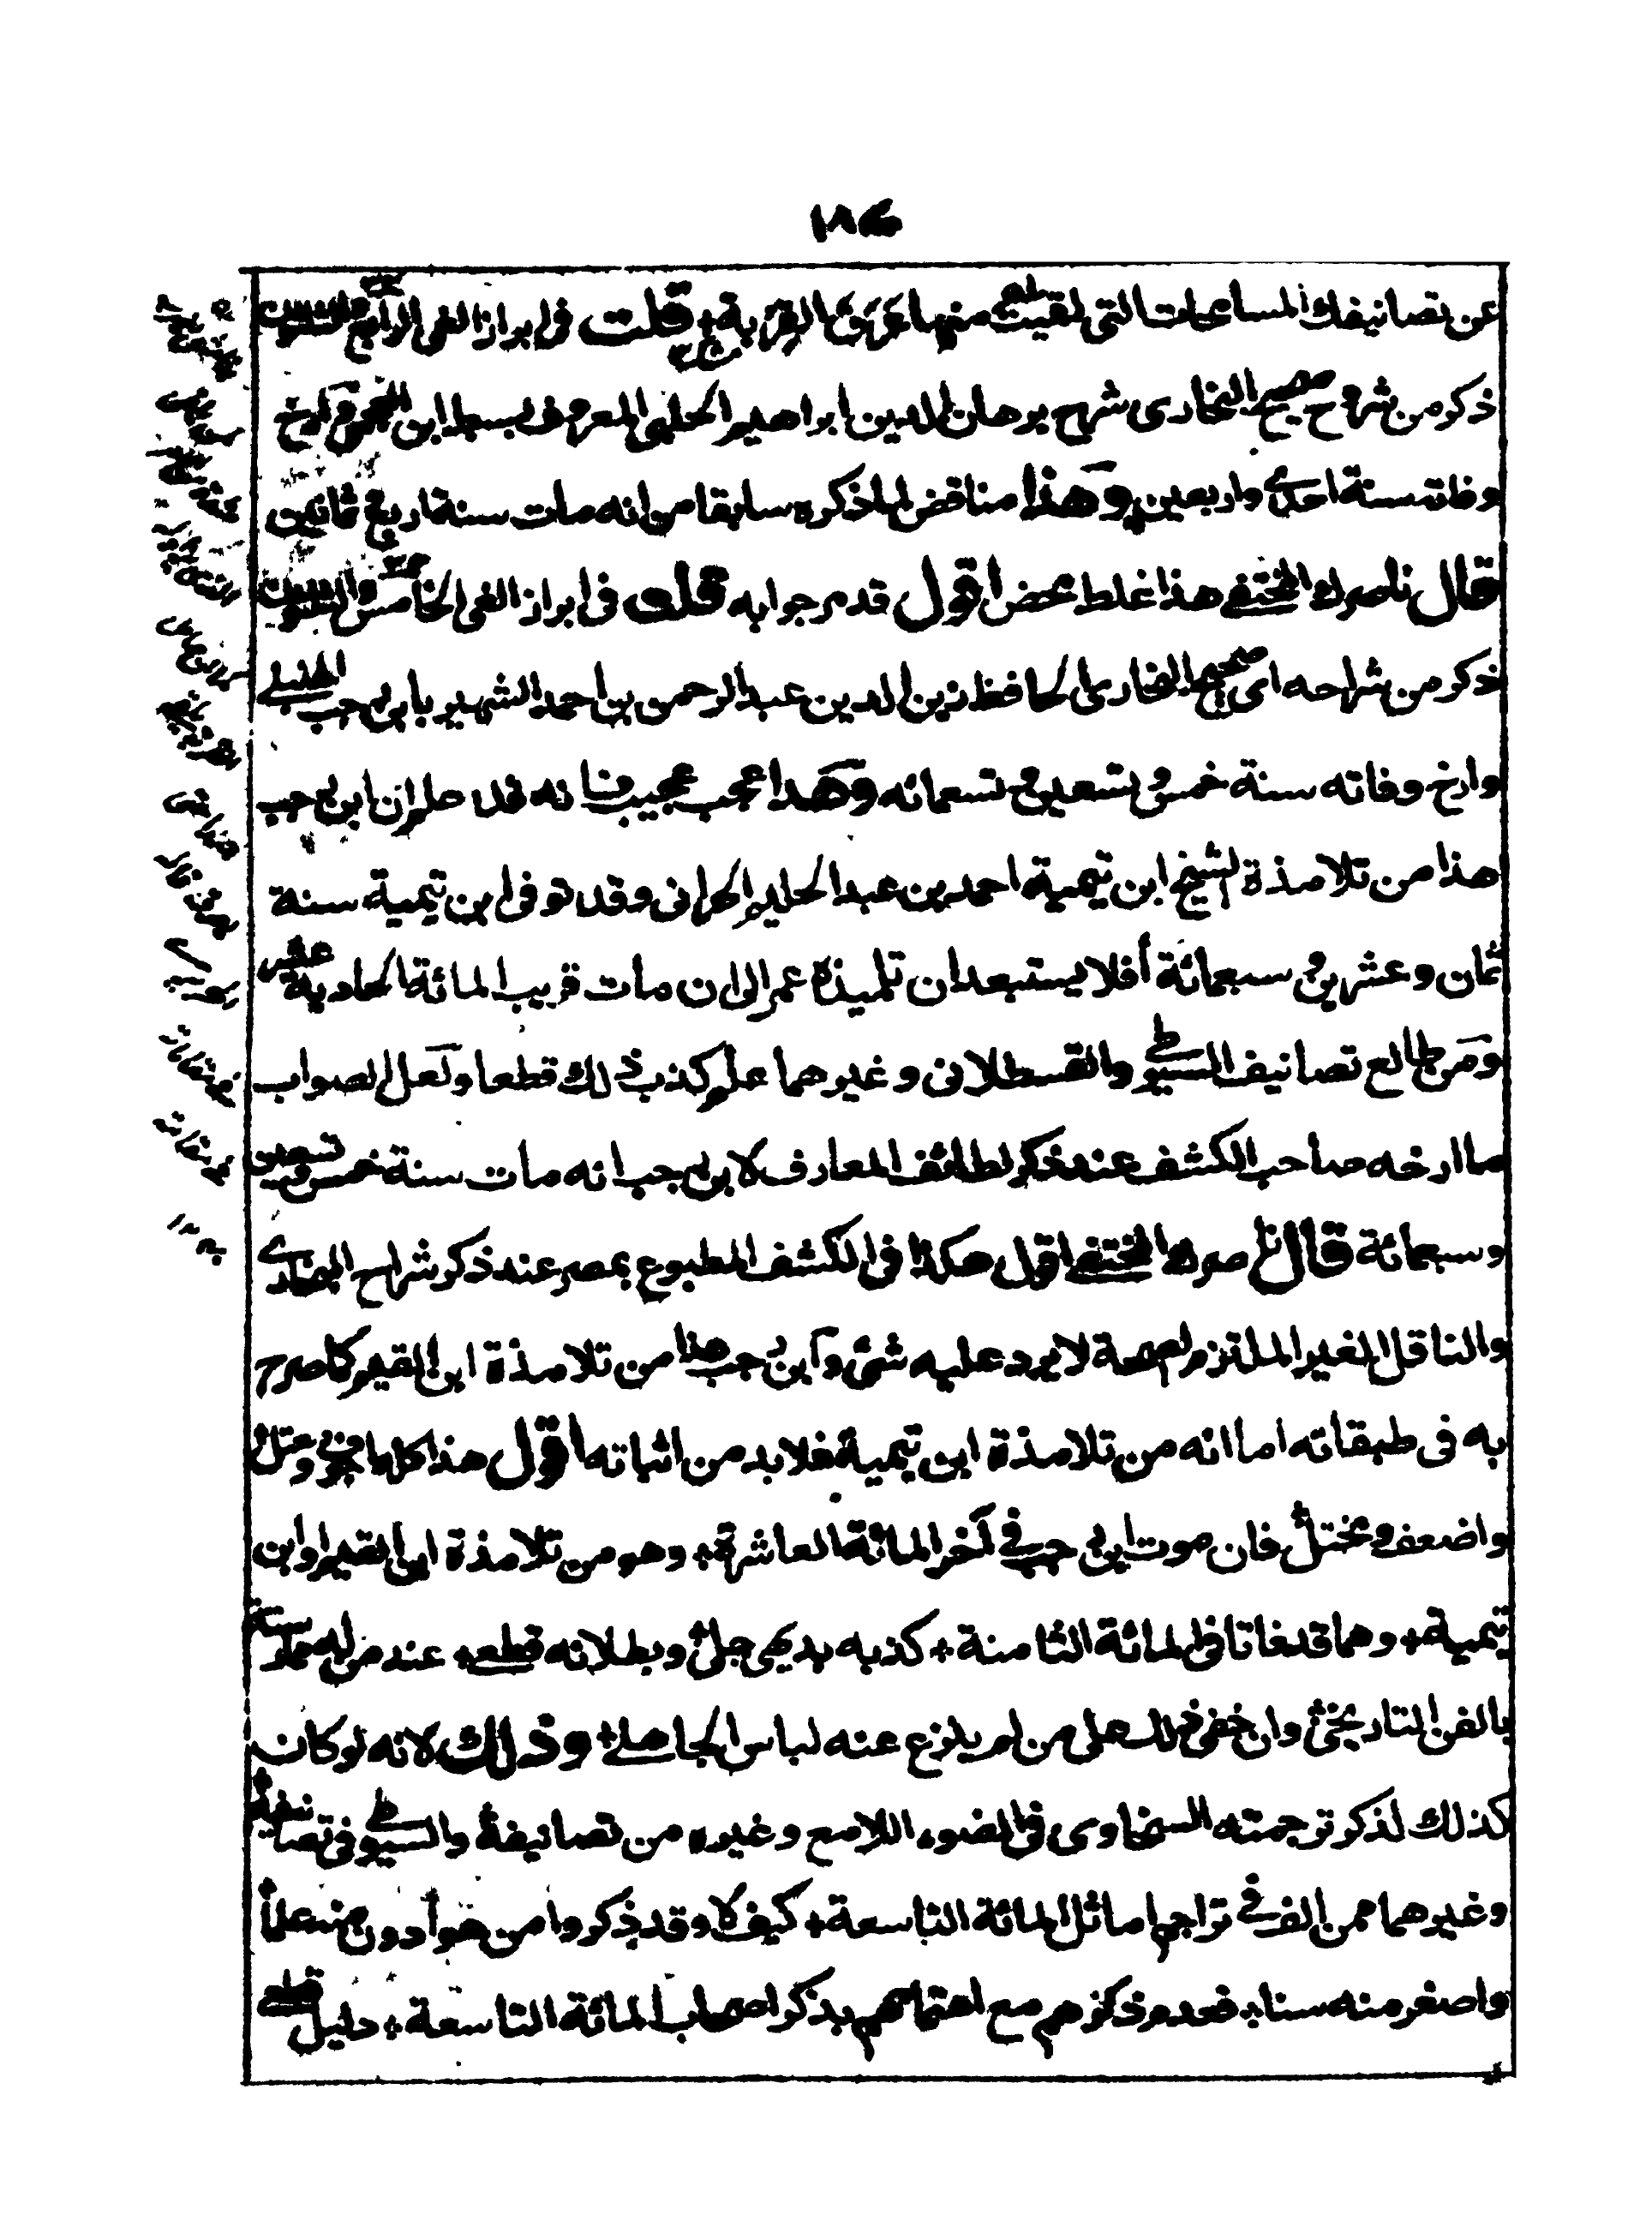 ١٨٤
عن تصانيفك المساهلات التى لقيت منها عرق القربة قلت فى ابراز الغى الرابع والستين
ذكر من شروح صحيح البخارى شرح برهان الدين ابراهيم الحلبى المعروف بسبط ابن العجمى وارخ
وفاته سنة احدى واربعين وهذا مناقض لما ذكره سابقا من انه مات سنة اربع وثمانين
قال ناصرك المختفى هذا غلط محض اقول قد مر جوابه قلت فى ابراز الغى الخامس والستون
ذكر من شراحه اى صحيح البخارى الحافظ زين الدين عبد الرحمن بن احمد الشهير بابن رجب الحنبلى
وارخ وفاته سنة خمس وتسعين وتسعمائه وهذا عجب عجيب فانه قد علم ان ابن رجب
هذا من تلامذة الشيخ ابن تيمية احمد بن عبد الحليم الحرانى وقد توفى ابن تيمية سنة
ثمان وعشرين وسبعمائة أفلا يستبعد ان تلميذه عمر الى ان مات قريب المائة الحادية عشر
ومن طالع تصانيف السيوطى والقسطلانى وغيرهما علم كذب ذلك قطعا ولعل الصواب
ما ارخه صاحب الكشف عند ذكر لطائف المعارف لابن رجب انه مات سنة خمس وتسعين
وسبعمائة قال ناصرك المختفى اقول هكذا فى الكشف المطبوع بمصر عند ذكر شراح البخارى
والناقل الغير الملتزم لصحة لا يرد عليه شئ وابن رجب هذا من تلامذة ابن القيم كما صرح
به فى طبقاته اما انه من تلامذة ابن تيمية فلا بد من اثباته اقول هذا كله
واضعف ومختل فان موت ابن رجب فى آخر المائة العاشرة، وهو من تلامذة ابن القيم او ابن
تيمية، وهما قد فاتا فى المائة الثامنة، كذبه بديهى جلى وبطلانه قطعى، عند من له ممارسة
بالفن التاريخى وان خفى ذلك على من لم ينزع عنه لباس الجاهلى، وذلك لانه لو كان
كذلك لذكر ترجمته السخاوى فى الضوء اللامع وغيره من تصانيفه والسيوطى فى تصانيفه
وغيرهما ممن الف فى تراجم اماثل المائة التاسعة، كيف لا وقد ذكروا من هو أدون منه علما
واصغر منه سنا، فعدم ذكرهم مع اهتمامهم بذكر اصحاب المائة التاسعة، دليل قطعى